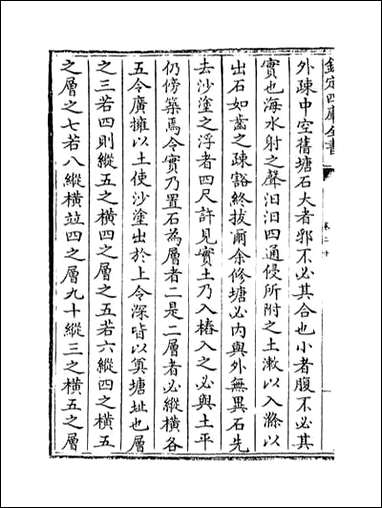 欽定四庫全書
卷二十
外疎中空舊塘石大者郛不必其合也小者腹不必其
實也海水射之聲汩汩四通侵所附之土漱以入滌以
出石如齒之疎豁終拔爾余修塘必内與外無異石先
去沙塗之浮者四尺許見實土乃入樁入之必與土平
仍傍築焉令實乃置石為層者二是二層者必縱橫各
五令廣擁以土使沙塗出於上令深皆以奠塘址也層
之三若四則縱五之橫四之層之五若六縱四之橫五
之層之七若八縱橫竝四之層九十縱三之橫五之層